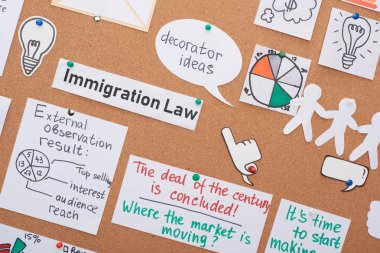 decorator
ideas
Immigration Law
External
observation
result:
5 43
12 5
Top selling
interest
audience
reach
The deal of the century
is concluded!
Where the market is
moving?
It's time
to start
making
15%